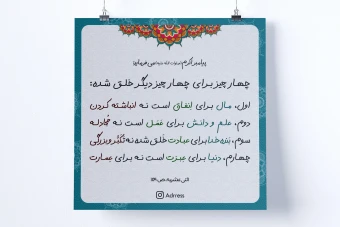 پیامبر اکرم می فرمایند
چهار چیز برای چهار چیز دیگر خلق شده:
اول، مال برای انفاق است نه انباشته کردن
دوم، علم و دانش برای عمل است نه مجادله
سوم، بنده خدا برای عبادت خلق شده نه تکبّر و بزرگی
چهارم، دنیا برای عبرت است نه برای عمارت
Adrress